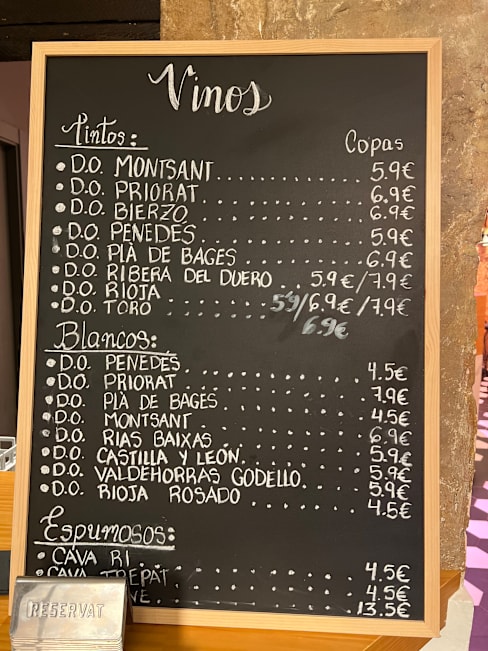 Vinos
Tintos: Copas
• D.O. MONTSANT.................. 5.9€
• D.O. PRIORAT.................. 6.9€
• D.O. BIERZO.................. 6.9€
• D.O. PENEDÈS.................. 5.9€
• D.O. PLÀ DE BAGES.................. 6.9€
• D.O. RIBERA DEL DUERO . 5.9€/7.9€
• D.O. RIOJA .......... 5'9/6.9€/7.9€
• D.O. TORO .......... 6.9€
Blancos:
• D.O. PENEDÈS.................. 4.5€
• D.O. PRIORAT.................. 7.9€
• D.O. PLÀ DE BAGES.................. 4.5€
• D.O. MONTSANT.................. 6.9€
• D.O. RIAS BAIXAS.................. 5.9€
• D.O. CASTILLA Y LEÓN.................. 5.9€
• D.O. VALDEHORRAS GODELLO.......... 5.9€
• D.O. RIOJA ROSADO.................. 4.5€
Espumosos:
• CAVA RI.................. 4.5€
• CAVA TREPAT.................. 4.5€
NE.................. 13.5€
RESERVAT